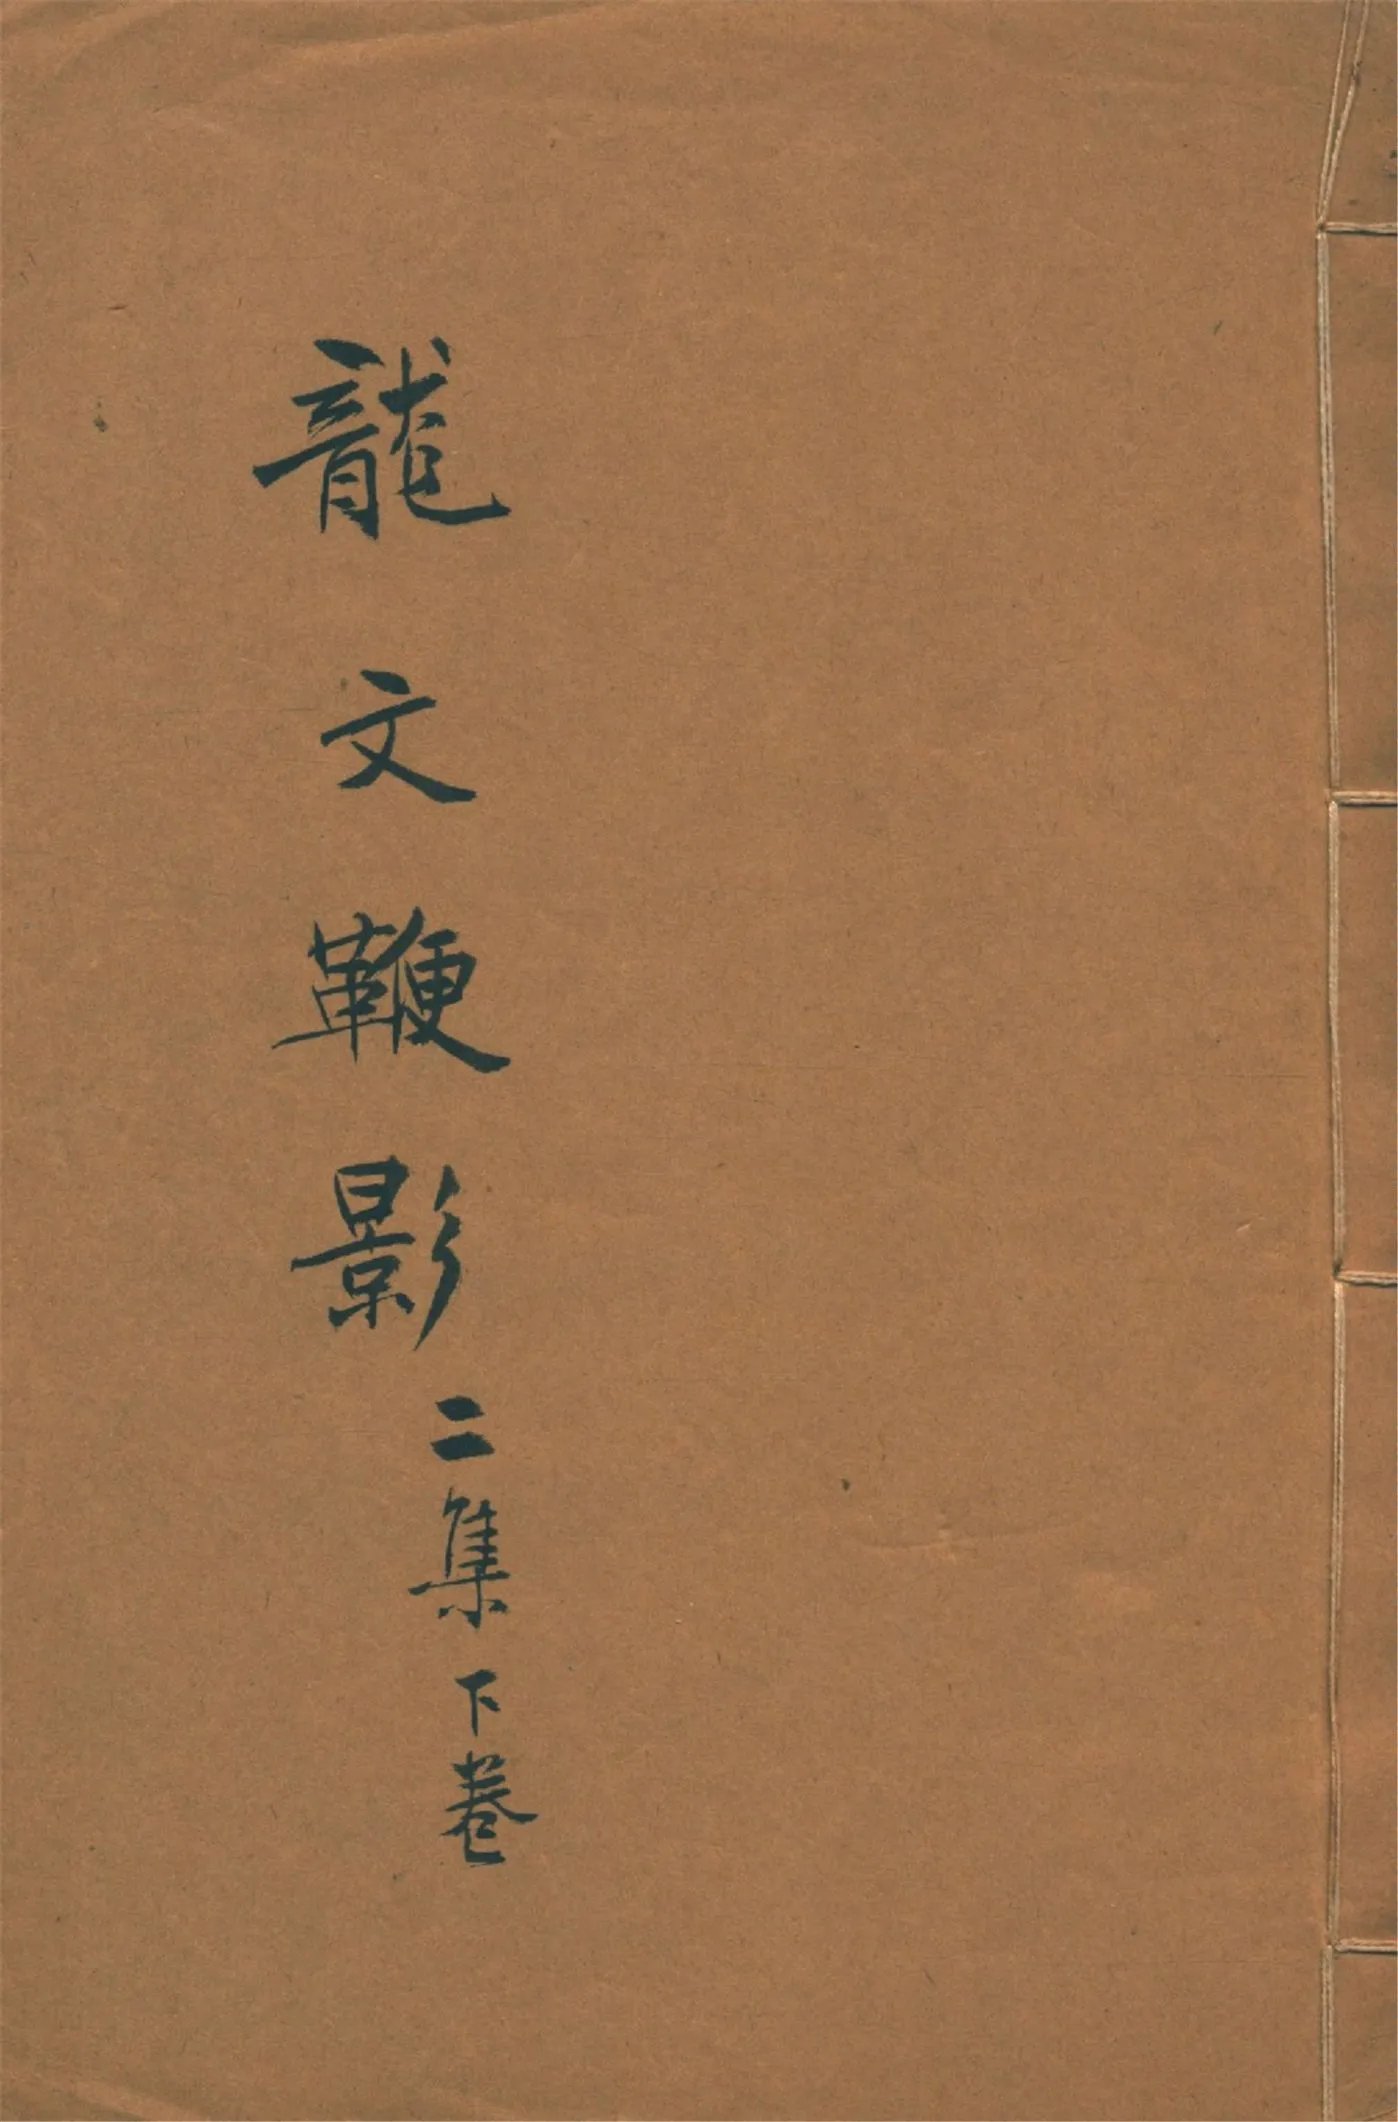 龍文鞭影
二集下卷